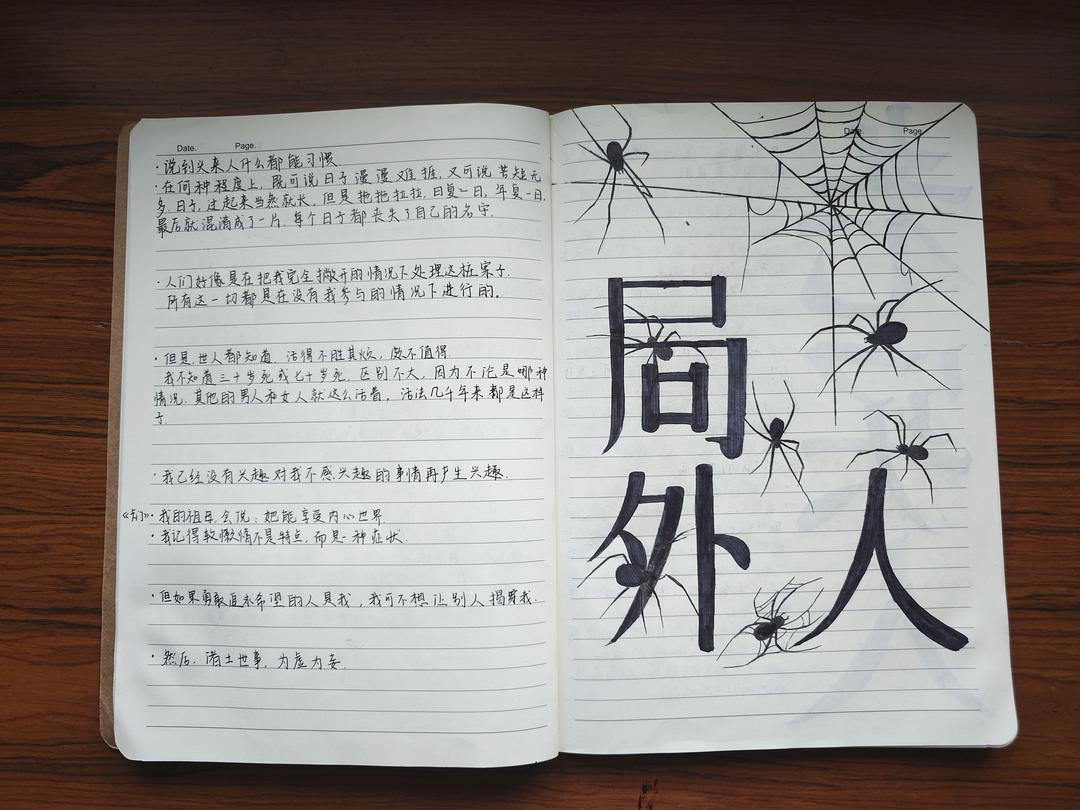 Date. Page.
·说到头来人什么都能习惯.
·在何种程度上,既可说日子漫漫难捱,又可说苦短无
多.日子,过起来当然就长,但是拖拖拉拉,日复一日,年复一日,
最后就混淆成了一片.每个日子都丧失了自己的名字.
·人们好像是在把我完全撇开的情况下处理这桩案子.
所有这一切都是在没有我参与的情况下进行的.
·但是,世人都知道,活得不胜其烦,颇不值得.
我不知道三十岁死或七十岁死,区别不大,因为不论是哪种
情况,其他的男人和女人就这么活着,活法几千年来都是这样
子.
·我已经没有兴趣对我不感兴趣的事情再产生兴趣.
·我的祖母会说:她能享受内心世界.
·我记得软懒情不是特点,而是一种症状.
·但如果勇敢追求希望的人是我,我可不想让别人揭穿我.
·然后,诸土世事,为虚为妄.
Date. Page
局
外人